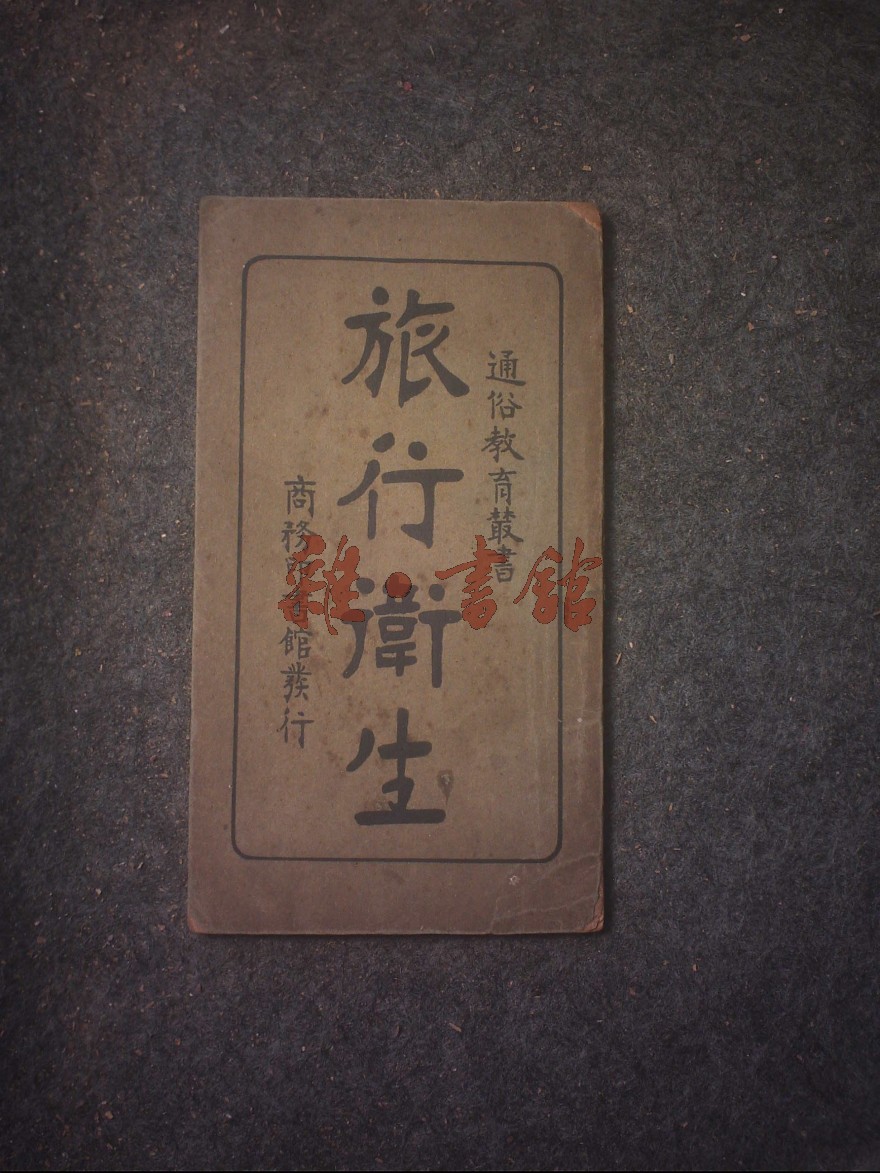 通俗教育叢書
旅行衛生
商務印書館發行
雜·書館